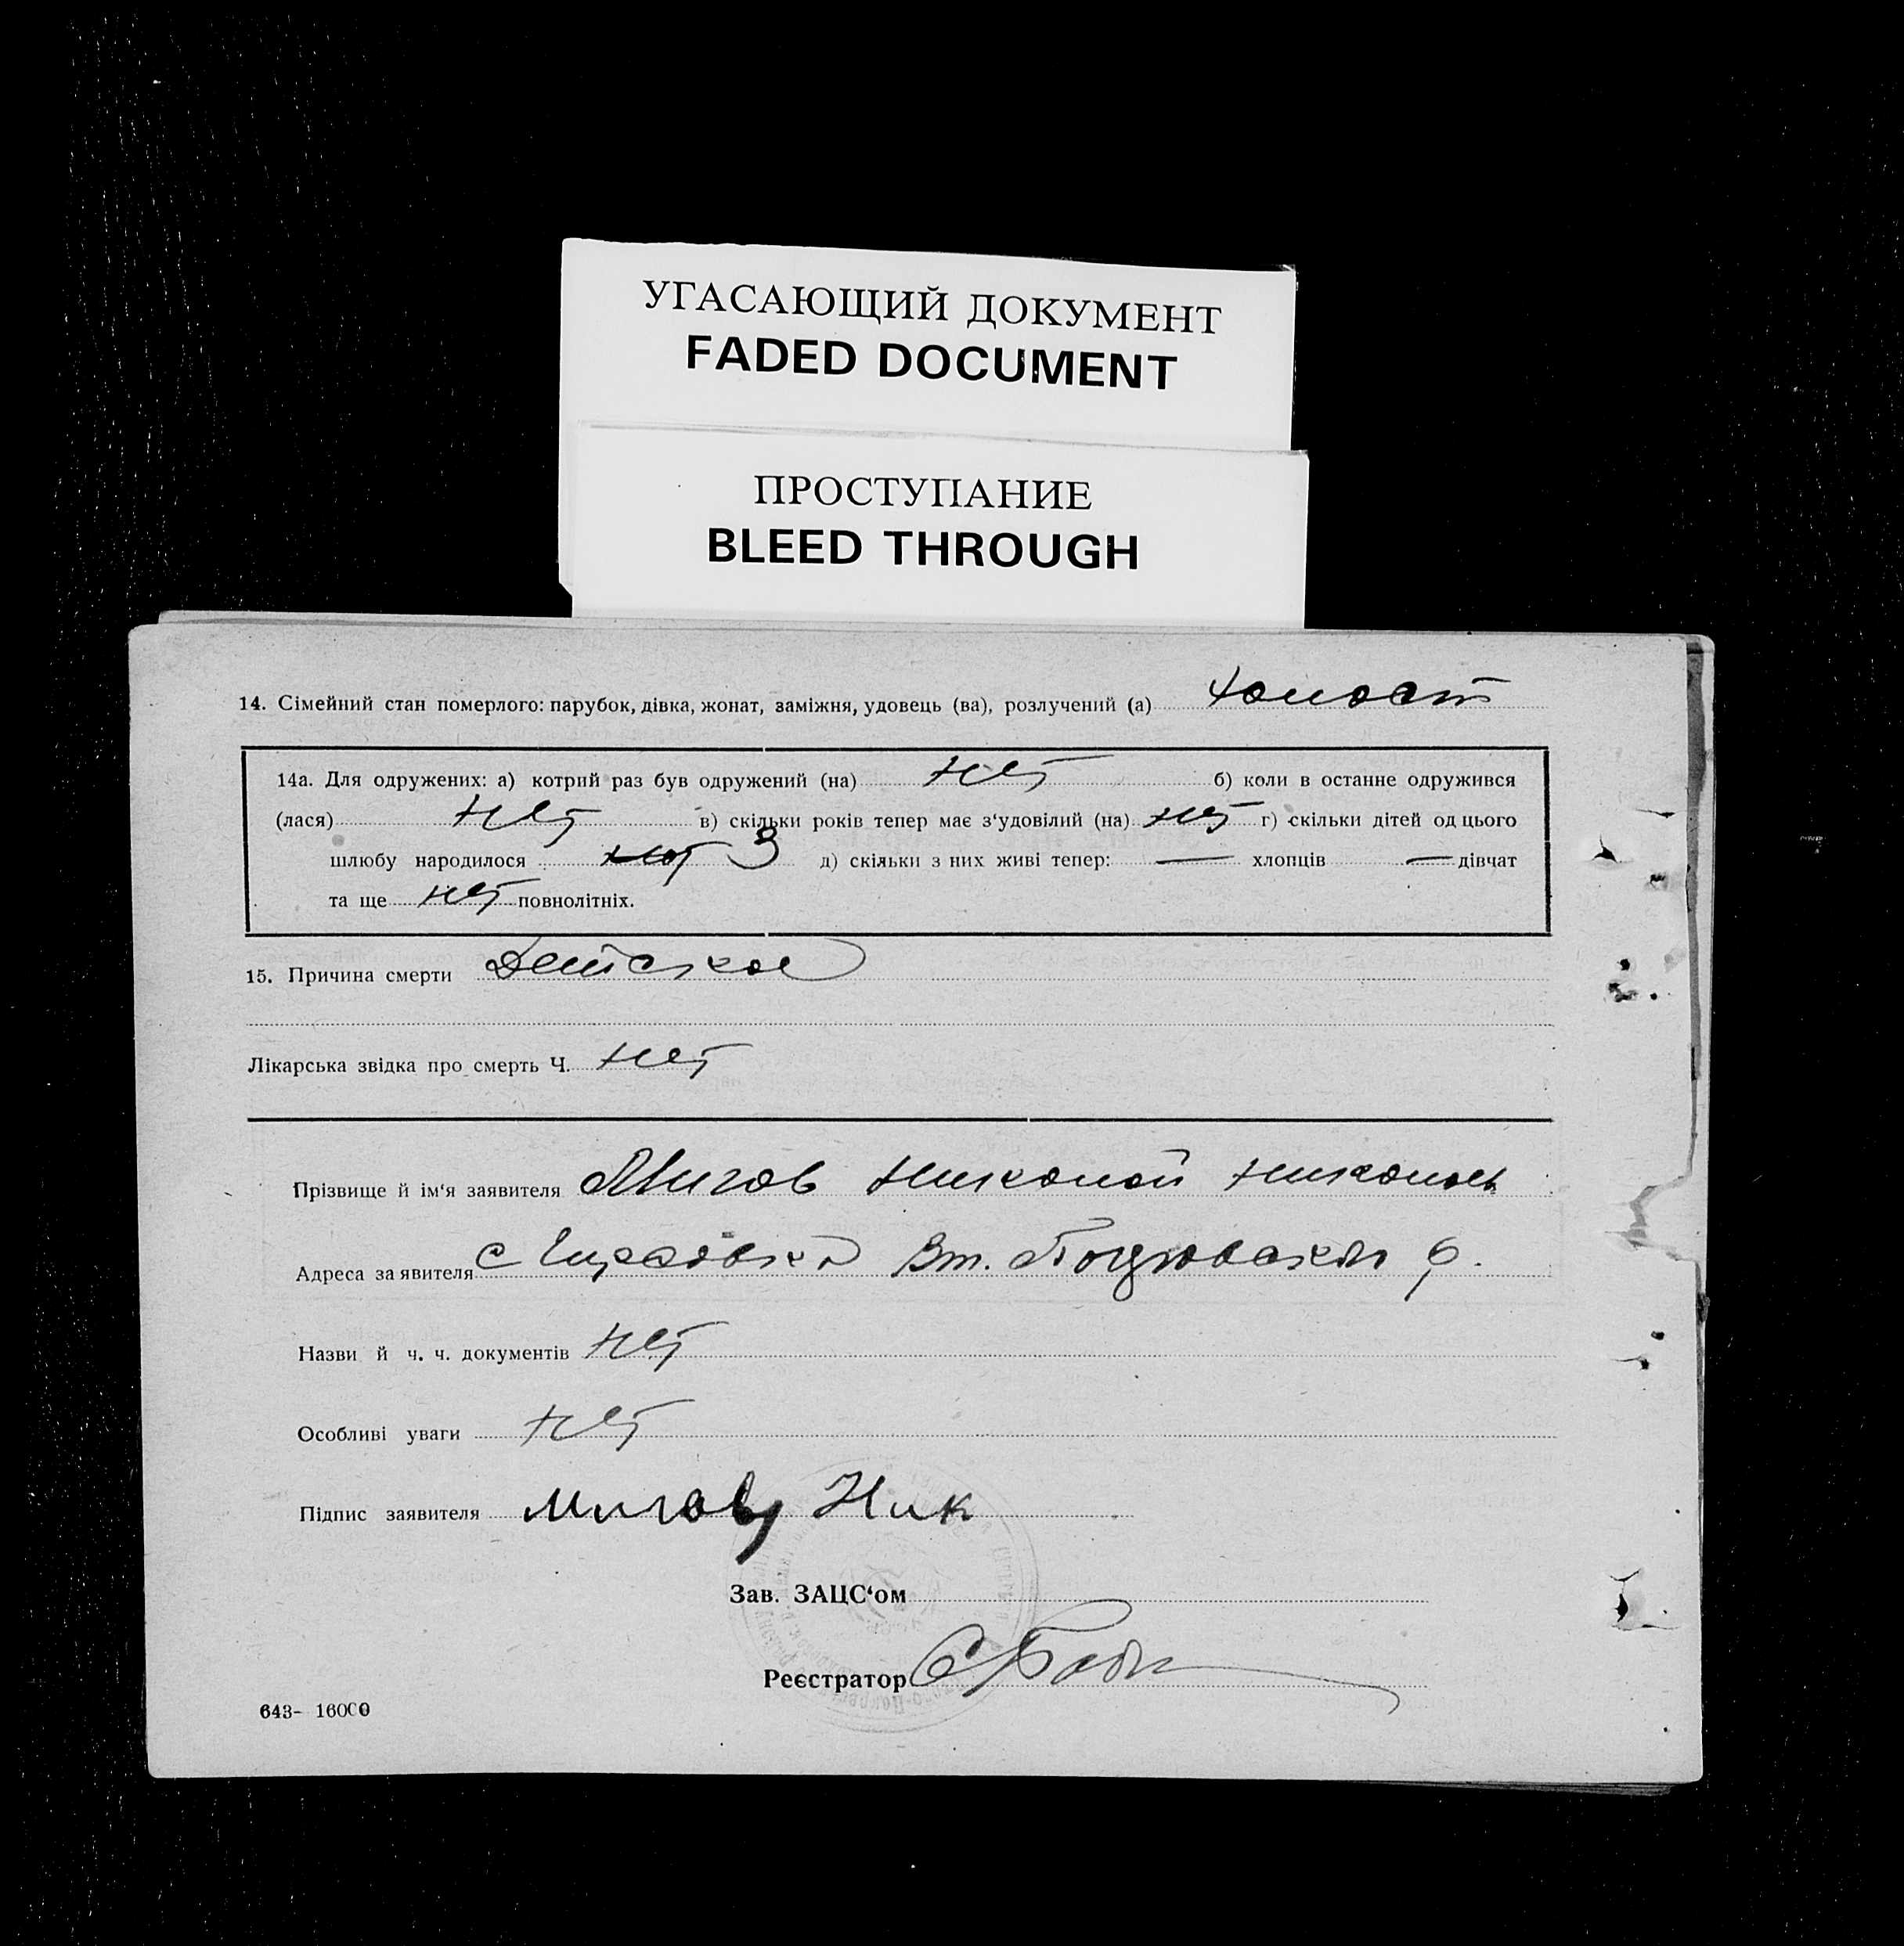 УГАСАЮЩИЙ ДОКУМЕНТ
FADED DOCUMENT
ПРОСТУПАНИЕ
BLEED THROUGH
14. Сімейний стан померлого: парубок, дівка, жонат, заміжня, удовець (ва), розлучений (а) холост
14а. Для одружених: а) котрий раз був одружений (на) нет б) коли в останне одружився
(лася) нет в) скільки років тепер має з‘удовілий (на) нет г) скільки дітей од цього
шлюбу народилося нет 3 д) скільки з них живі тепер: — хлопців — дівчат
та ще нет повнолітніх.
15. Причина смерти Детская
Лікарська звідка про смерть Ч. нет
Прізвище й ім‘я заявителя Мигов Николай Николаев
Адреса заявителя с Вт.
Назви й ч. ч. документів нет
Особливі уваги нет
Підпис заявителя Мигов Ник
Зав. ЗАЦС‘ом
Реєстратор
643- 16000